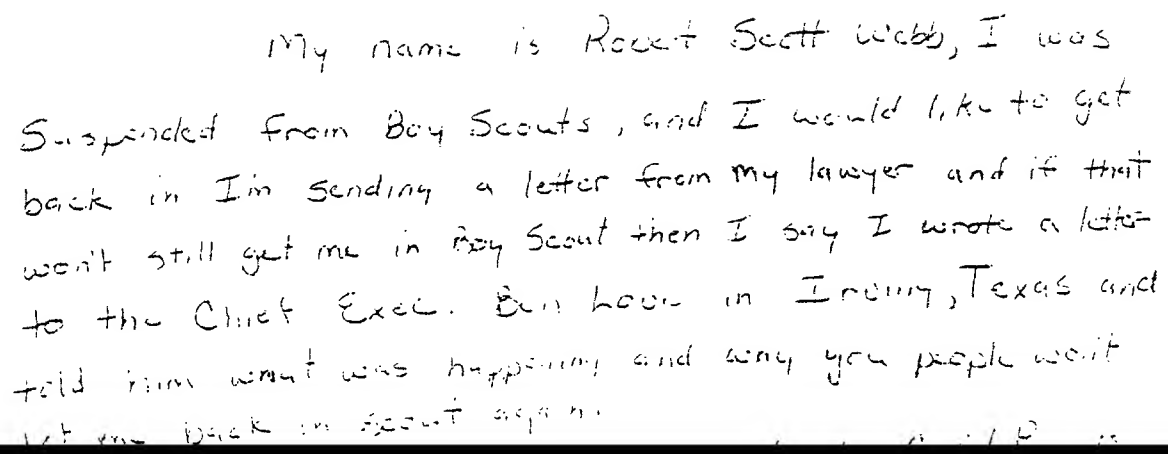 My name is Robert Scott Webb, I was
Suspended from Boy Scouts, and I would like to get
back in I'm sending a letter from my lawyer and if that
won't still get me in Boy Scout then I say I wrote a letter
to the Chief Exec. Ben Love in Irving, Texas and
told him what was happening and why you people won't
let me back in scout again.